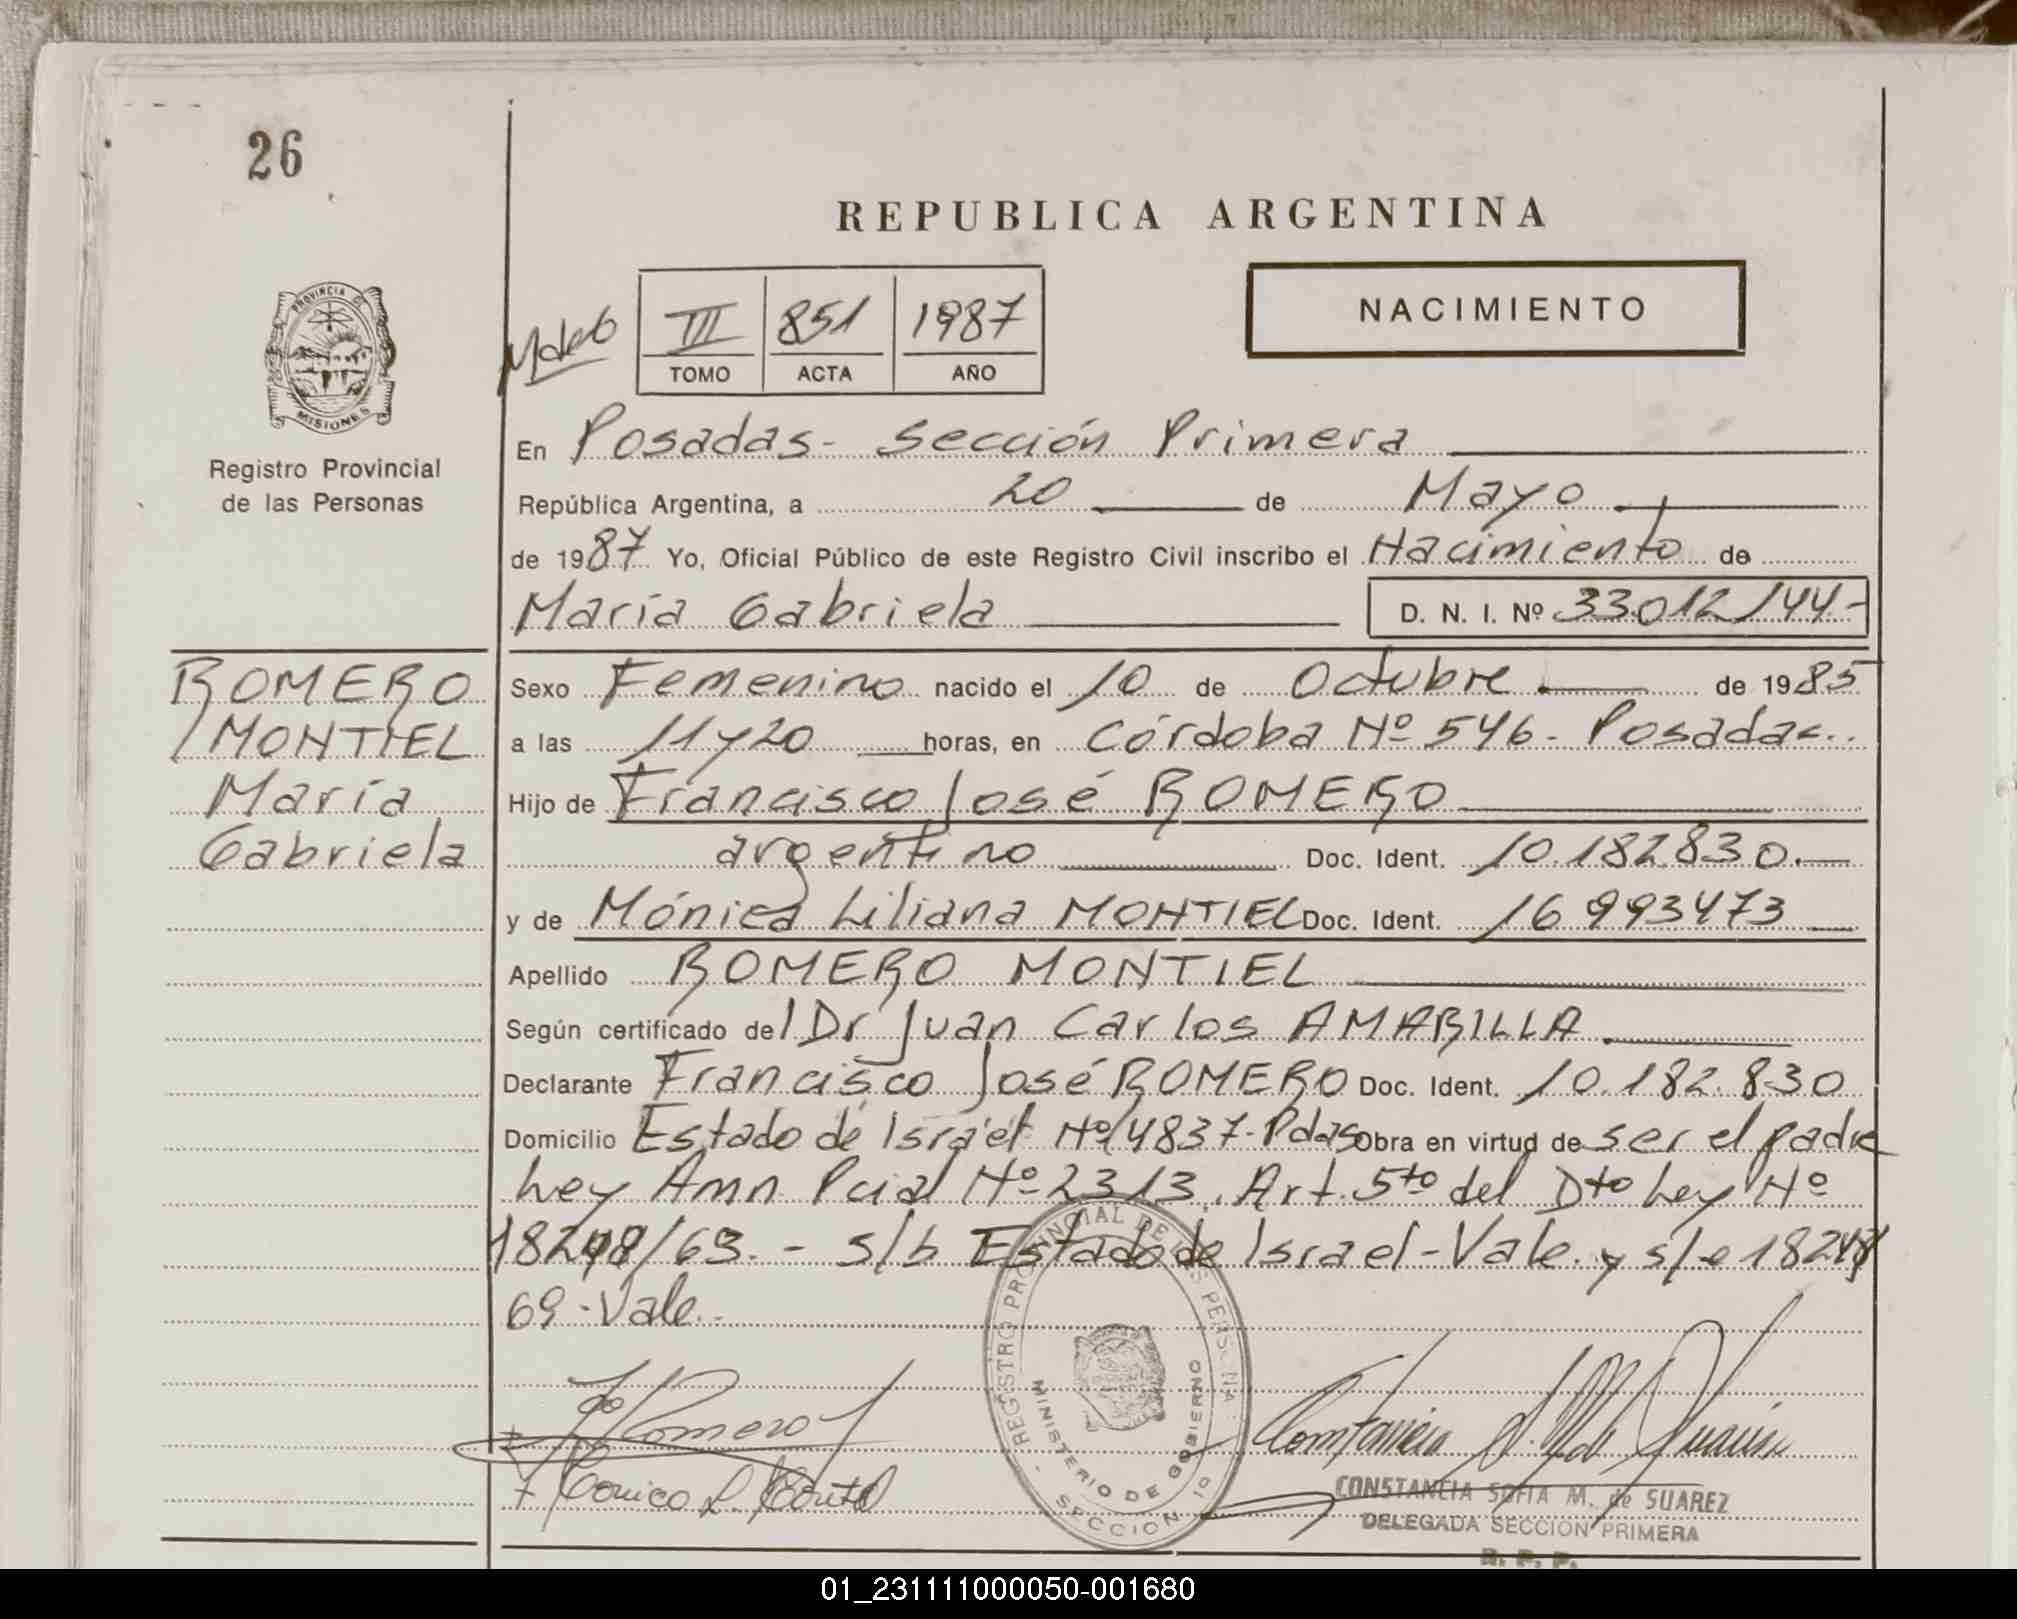 26
REPUBLICA ARGENTINA
NACIMIENTO
III 851 1987
TOMO ACTA AÑO
PROVINCIA DE MISIONES
Registro Provincial
de las Personas
En Posadas - Sección Primera
República Argentina, a 20 de Mayo
de 1987 Yo, Oficial Público de este Registro Civil inscribo el Nacimiento de
María Gabriela D. N. I. Nº 33.012.144.-
ROMERO
MONTIEL
María
Gabriela
Sexo Femenino nacido el 10 de Octubre de 1985
a las 11 y 20 horas, en Córdoba Nº 546 - Posadas..
Hijo de Francisco José ROMERO
argentino Doc. Ident. 10.182.830.
y de Mónica Liliana MONTIEL Doc. Ident. 16.993473
Apellido ROMERO MONTIEL
Según certificado del Dr Juan Carlos AMARILLA
Declarante Francisco José ROMERO Doc. Ident. 10.182.830
Domicilio Estado de Israel Nº 4837 - Pdas Obra en virtud de ser el padre
Ley Amn Pcial Nº 2313. Art. 5to del Dto Ley Nº
18248/63. - s/b Estado de Israel - Vale y s/e 18248/
69 - Vale.-
REGISTRO PROVINCIAL DE LAS PERSONAS
MINISTERIO DE GOBIERNO
SECCION 1º
CONSTANCIA SOFIA M. de SUAREZ
DELEGADA SECCION PRIMERA
R. P. P.
01_231111000050-001680